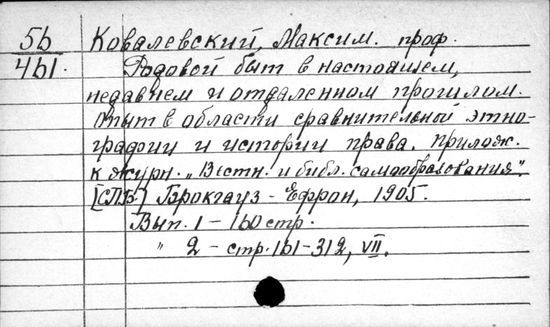 56 Ковалевский, Максим. проф.
461. Родовой быт в настоящем,
недавнем и отдаленном прошлом.
Опыт в области сравнительной этно-
графии и истории права. Прилож.
к журн. „Вестн. и библ. самообразования".
[СПБ] Брокгауз-Ефрон, 1905.
Вып. 1 – 160 стр.
" 2 – стр. 161-312, VII.